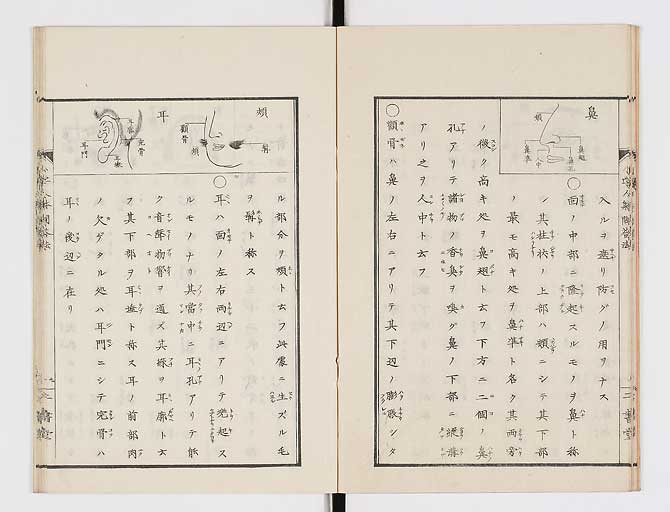 鼻
頞
鼻翅
鼻孔
人中
鼻準
入ルヲ遮リ防グノ用ヲナス
〇面ノ中部ニ隆起スルモノヲ鼻ト称
シ其柱ノ上部ハ頞ニシテ其下部
ノ最モ高キ処ヲ鼻準ト名ク其両旁
ノ微ク高キ処ヲ鼻翅ト云フ下方ニ二個ノ鼻
孔アリテ諸物ノ香臭ヲ嗅グ鼻ノ下部ニ縦溝
アリ之ヲ人中ト云フ
〇顴骨ハ鼻ノ左右ニアリテ其下辺ノ膨脹シタ
頬
顴骨
頬
髥
耳
完骨
耳門
ル部分ヲ頬ト云フ此処ニ生ズル毛
ヲ髥ト称ス
〇耳ハ面ノ左右両辺ニアリテ兀起ス
ルモノナリ其當中ニ耳孔アリテ能
ク音声物響ヲ通ズ其縁ヲ耳廓ト云
フ其下部ヲ耳埀ト称ス耳ノ前部肉
ノ欠ゲタル処ハ耳門ニシテ完骨ハ
耳ノ後辺ニ在リ